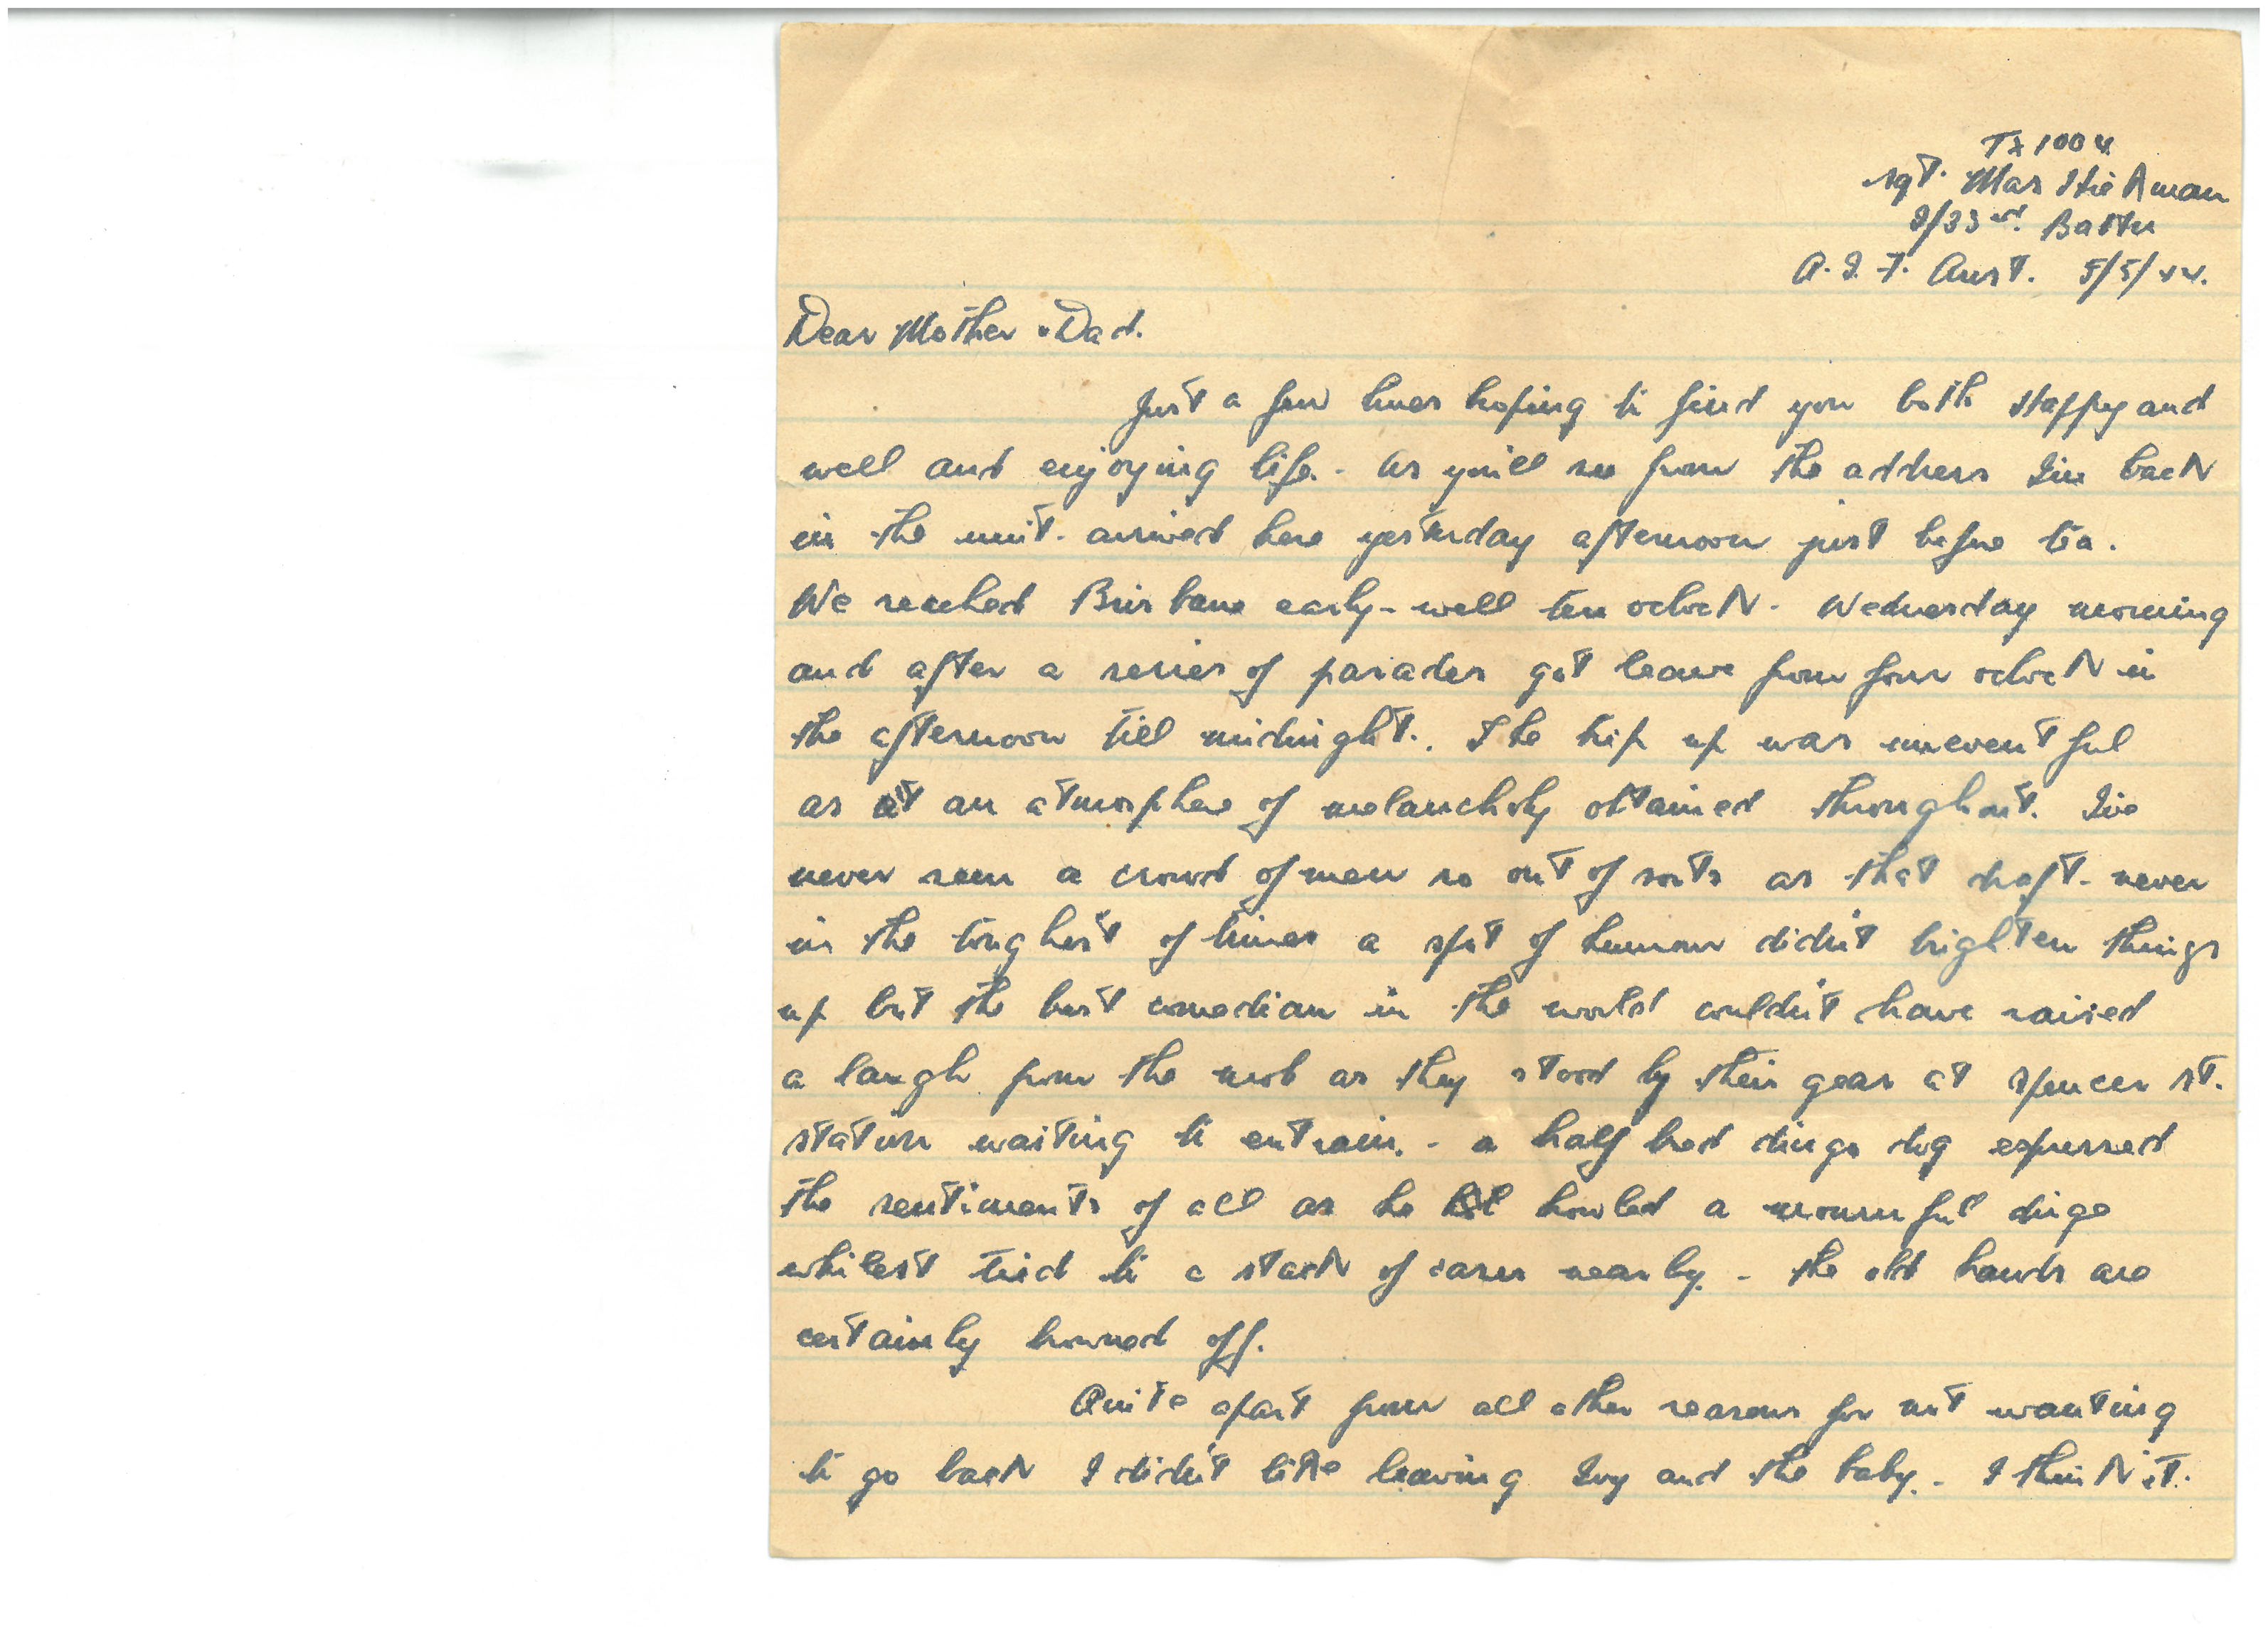 TX1004
Sgt. Max Hickman
2/33rd. Battn
A.I.F. Aust. 5/5/44.
Dear Mother & Dad.
Just a few lines hoping to find you both Happy and
well and enjoying life. - As you'll see from the address I'm back
in the unit - arrived here yesterday afternoon just before tea.
We reached Brisbane early - well ten oclock - Wednesday morning
and after a series of parades got leave from four oclock in
the afternoon till midnight. The trip up was uneventful
as an atmosphere of melancholy obtained throughout. I've
never seen a crowd of men so out of sorts as that draft - never
in the toughest of times a spot of humour didn't brighten things
up but the best comedian in the world couldn't have raised
a laugh from the mob as they stood by their gear at Spencer St.
station waiting to entrain. - a half bred dingo dog expressed
the sentiments of all as he howled a mournful dirge
whilest tied to a stack of cases nearby. - the old hands are
certainly browned off.
Quite apart from all other reasons for not wanting
to go back I didn't like leaving Ivy and the baby. - I think it.